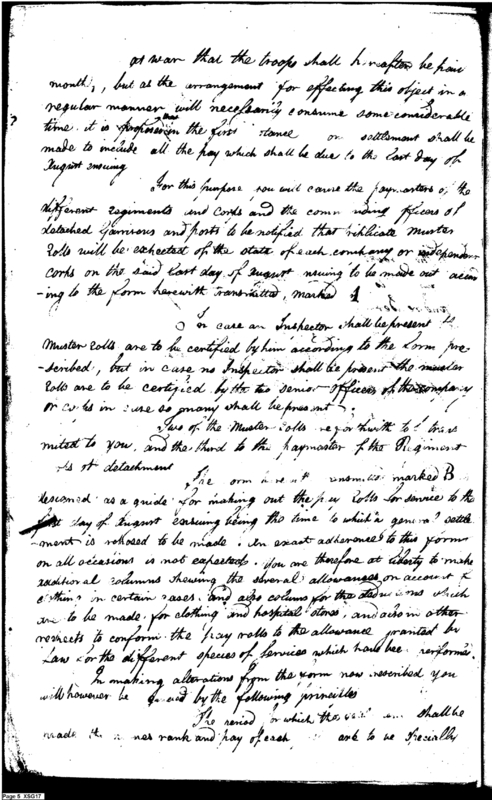 at war that the troops shall hereafter be paid
month, but as the arrangement for effecting this object in a
regular manner will necessarily consume some considerable
time it is proposed in the first settlement shall be
made to include all the pay which shall be due to the last day of
August ensuing
For this purpose, you will cause the paymasters of the
different regiments and corps and the commanding officers of
detached Garrisons and posts to be notified that triplicate muster
Rolls will be expected of the state of each company or independent
corps on the said last day of August ensuing to be made out accor
-ing to the form herewith transmitted, marked A
In case an Inspector shall be present
Muster rolls are to be certified by him according to the form pre-
scribed, but in case no Inspector shall be present the muster
Rolls are to be certified by the two senior officers of the company
or corps in case so many shall be present.
Two of the Muster Rolls are forthwith to be trans
mitted to you, and the third to the paymaster of the Regiment
detachment
The form marked B
designed as a guide for making out the pay Rolls for service to the
last day of August ensuing being the time to which a general settle
-ment is proposed to be made. An exact adherence to this form
on all occasions is not expected. You are therefore at liberty to make
additional columns shewing the several allowances on account of
clothing in certain cases, and also columns for the deductions which
are to be made for clothing and hospital stores, and also in other
respects to conform the pay rolls to the allowance granted by
Law for the different species of Services which have been performed
In making alterations from the form now prescribed you
will however be guided by the following principles
The period for which the shall be
made the names rank and pay of each are to be specially
Page 5 XSG17